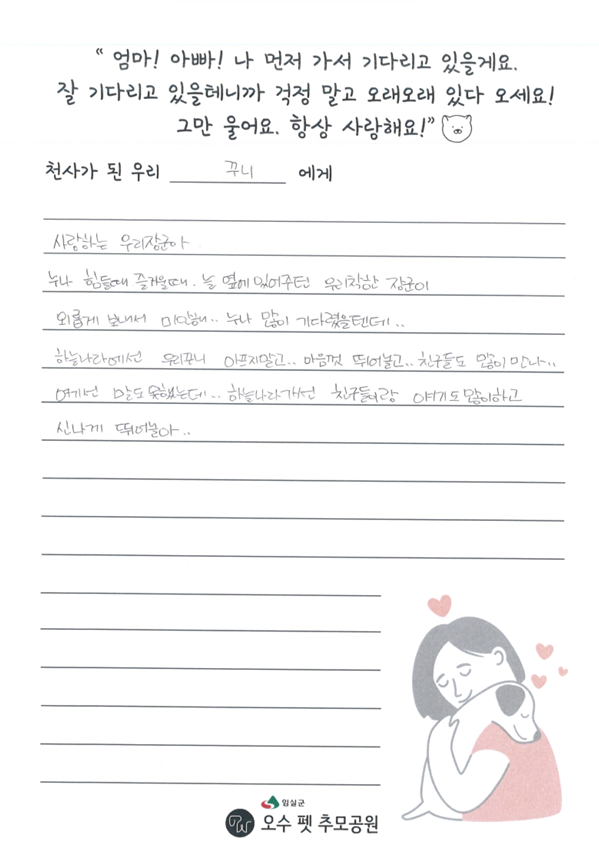 “ 엄마! 아빠! 나 먼저 가서 기다리고 있을게요.
잘 기다리고 있을테니까 걱정 말고 오래오래 있다 오세요!
그만 울어요. 항상 사랑해요!”
천사가 된 우리 꾸니 에게
사랑하는 우리장군아
누나 힘들때 즐거울때. 늘 옆에 있어주던 우리착한 장군이
외롭게 보내서 미안해.. 누나 많이 기다렸을텐데..
하늘나라에선 우리꾸니 아프지말고.. 마음껏 뛰어놀고.. 친구들도 많이 만나..
여기선 말도 못했는데.. 하늘나라가선 친구들이랑 얘기도많이하고
신나게 뛰어놀아..
임실군
오수 펫 추모공원